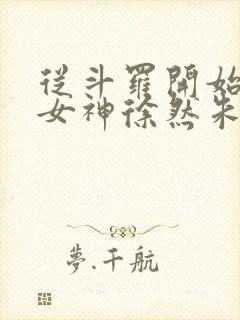 從斗羅開始
女神徐然朱
夢.千航